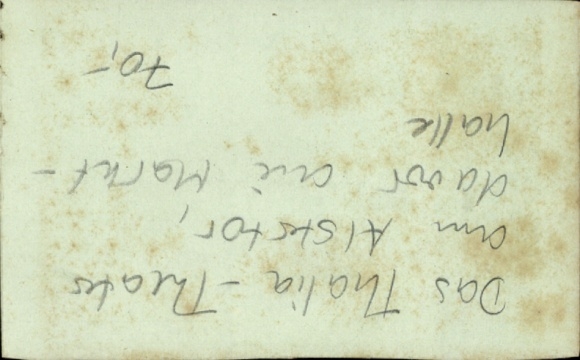 Das Thalia-Theater
am Alstertor,
davor die Markt-
halle
70,-